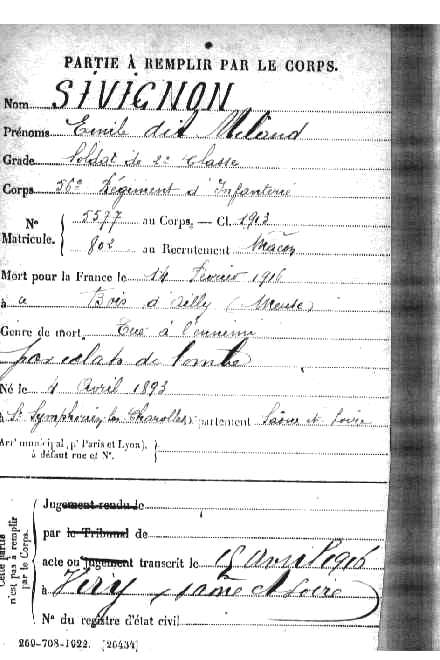 PARTIE À REMPLIR PAR LE CORPS.
Nom SIVIGNON
Prénoms Emile dit Miland
Grade Soldat de 2e Classe
Corps 56e Régiment d'Infanterie
N° Matricule. 5577 au Corps. — Cl. 1913
802 au Recrutement Mâcon
Mort pour la France le 14 Février 1916
à au Bois d'Ailly (Meuse)
Genre de mort Tué à l'ennemi
par eclats de bombe
Né le 4 Avril 1893
à St Symphorien les Charolles Département Saône et Loire
Arrt municipal (pr Paris et Lyon),
à défaut rue et N°.
Cette partie n'est pas à remplir par le Corps.
Jugement rendu le
par le Tribunal de
acte ou jugement transcrit le 15 avril 1916
à Viry, Saône et Loire
N° du registre d'état civil
269-708-1922. [26434]